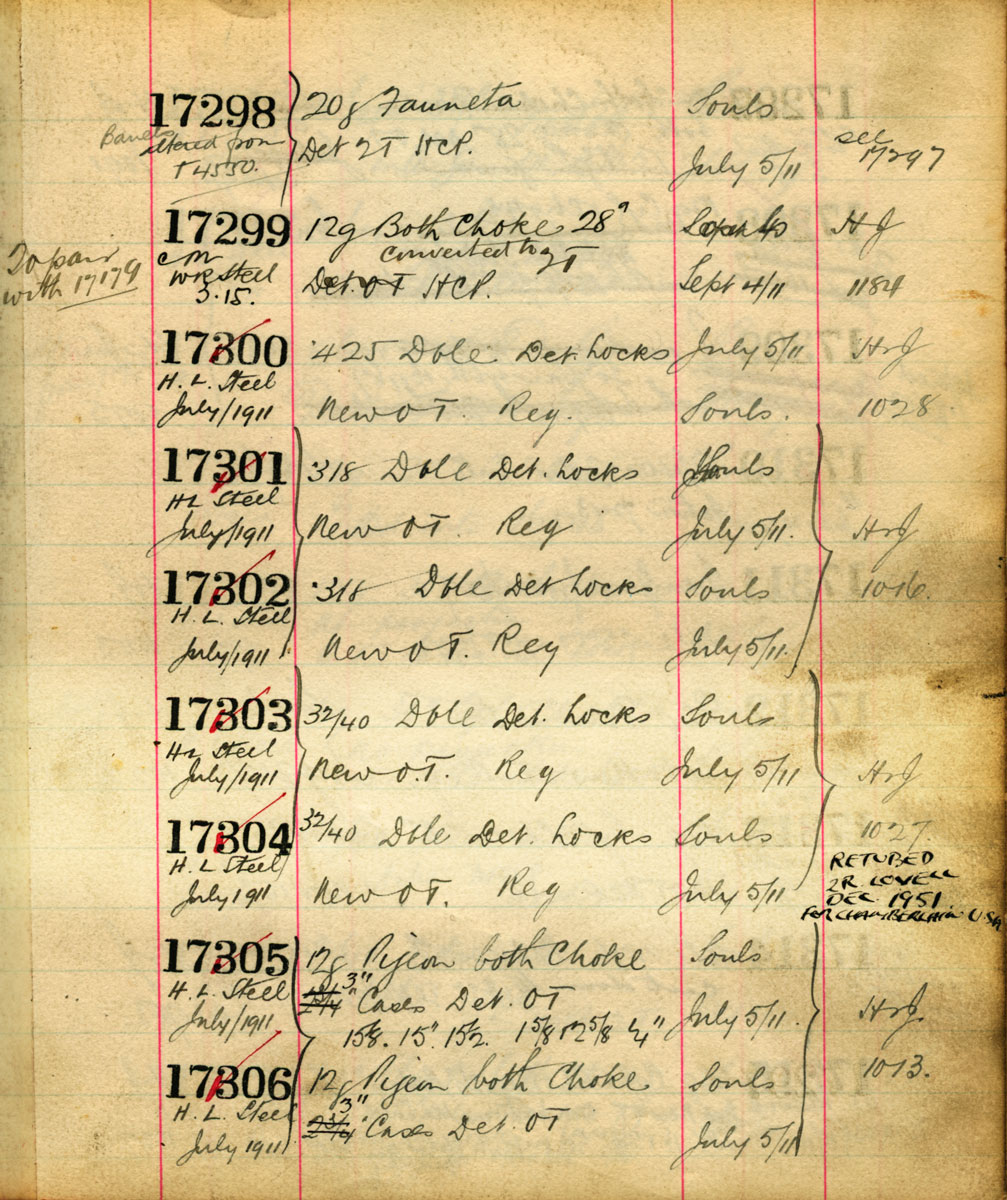 17298 20g Fauneta Souls
Barrels
altered from Det 2T HCP. see
T4550. July 5/11 17297
17299 12g Both Choke 28" Sept 4 H & J
To pair converted to 2T
with 17179 WR Steel Det. OT HCP. Sept 4/11 1184
3.15.
17300 .425 Dble Det. Locks July 5/11 H & J
H. L. Steel
July/1911 New OT. Reg. Souls. 1028
17301 .318 Dble Det. Locks Souls
HL Steel
July/1911 New OT. Reg July 5/11. H & J
17302 .318 Dble Det Locks Souls 1016.
H. L. Steel
July/1911 New OT. Reg July 5/11.
17303 32/40 Dble Det. Locks Souls
HL Steel
July/1911 New O.T. Reg July 5/11 H & J
17304 32/40 Dble Det. Locks Souls 1027.
H. L Steel RETUBED
July 1911 New OT. Reg July 5/11 2R LOVELL
DEC 1951
FOR CHAMBERLAIN U.SA
17305 12g Pigeon both Choke Souls
H. L. Steel 3" Cases Det. OT
July/1911 15⅝. 15" 15½. 1⅝ 2⅝ ¼" July 5/11. H & J.
17306 12g Pigeon both Choke Souls 1013.
H. L. Steel 3" Cases Det. OT
July 1911 July 5/11